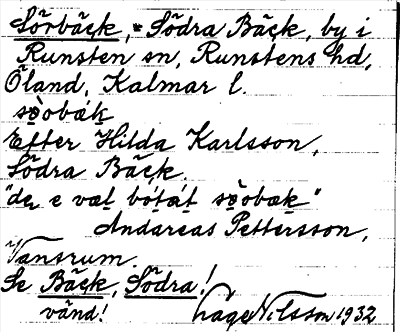 Sörbäck, = Södra Bäck, by i
Runsten sn, Runstens hd,
Öland, Kalmar l.
Efter Hilda Karlsson,
Södra Bäck.
Andareas Pettersson,
Vansrum.
Se Bäck, Södra!
vänd! Låge Nilsson 1932